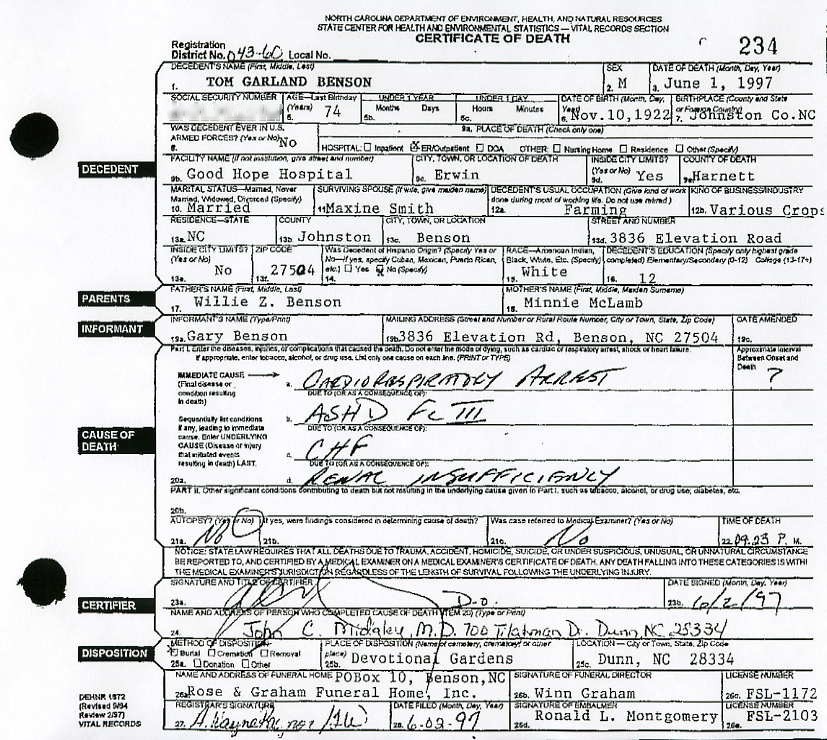 NORTH CAROLINA DEPARTMENT OF ENVIRONMENT, HEALTH, AND NATURAL RESOURCES
STATE CENTER FOR HEALTH AND ENVIRONMENTAL STATISTICS – VITAL RECORDS SECTION
CERTIFICATE OF DEATH
234
Registration
District No. 043-60 Local No.
DECEDENT
DECEDENT'S NAME (First, Middle, Last)
1. TOM GARLAND BENSON
SEX
2. M
DATE OF DEATH (Month, Day, Year)
3. June 1, 1997
SOCIAL SECURITY NUMBER
AGE—Last Birthday
(Years)
5. 74
UNDER 1 YEAR
Months Days
5b.
UNDER 1 DAY
Hours Minutes
5c.
DATE OF BIRTH (Month, Day,
Year)
6. Nov.10,1922
BIRTHPLACE (County and State
or Foreign Country)
7. Johnston Co.NC
WAS DECEDENT EVER IN U.S.
ARMED FORCES? (Yes or No)
8. No
9a. PLACE OF DEATH (Check only one)
HOSPITAL: Inpatient ER/Outpatient DOA OTHER: Nursing Home Residence Other (Specify)
FACILITY NAME (if not institution, give street and number)
9b. Good Hope Hospital
CITY, TOWN, OR LOCATION OF DEATH
9c. Erwin
INSIDE CITY LIMITS?
9d. Yes
COUNTY OF DEATH
9e. Harnett
MARITAL STATUS—Married, Never
Married, Widowed, Divorced (Specify)
10. Married
SURVIVING SPOUSE (If wife, give maiden name)
11 Maxine Smith
DECEDENT'S USUAL OCCUPATION (Give kind of work
done during most of working life. Do not use retired)
12a. Farming
KIND OF BUSINESS/INDUSTRY
12b. Various Crops
RESIDENCE—STATE
13a. NC
COUNTY
13b Johnston
CITY, TOWN, OR LOCATION
13c. Benson
STREET AND NUMBER
13d. 3836 Elevation Road
INSIDE CITY LIMITS?
(Yes or No)
13e. No
ZIP CODE
13f. 27504
Was Decedent of Hispanic Origin? (Specify Yes or
No—if yes, specify Cuban, Mexican, Puerto Rican,
etc.) Yes No (Specify)
14.
RACE—American Indian,
Black, White, Etc. (Specify)
15. White
DECEDENT'S EDUCATION (Specify only highest grade
completed) Elementary/Secondary (0-12) College (13-17+)
16. 12
PARENTS
FATHER'S NAME (First, Middle, Last)
17. Willie Z. Benson
MOTHER'S NAME (First, Middle, Maiden Surname)
18. Minnie McLamb
INFORMANT
INFORMANT'S NAME (Type/Print)
19a. Gary Benson
MAILING ADDRESS (Street and Number or Rural Route Number, City or Town, State, Zip Code)
19b. 3836 Elevation Rd, Benson, NC 27504
DATE AMENDED
19c.
CAUSE OF
DEATH
Part I. Enter the diseases, injuries, or complications that caused the death. Do not enter the mode of dying, such as cardiac or respiratory arrest, shock or heart failure.
If appropriate, enter tobacco, alcohol, or drug use. List only one cause on each line. (PRINT or TYPE)
Approximate Interval
Between Onset and
Death
?
IMMEDIATE CAUSE
(Final disease or
condition resulting
in death)
a. CARDIORESPIRATORY ARREST
DUE TO (OR AS A CONSEQUENCE OF):
Sequentially list conditions
if any, leading to immediate
cause. Enter UNDERLYING
CAUSE (Disease or injury
that initiated events
resulting in death) LAST.
b. ASHD Fc III
DUE TO (OR AS A CONSEQUENCE OF):
c. CHF
DUE TO (OR AS A CONSEQUENCE OF):
20a. d. RENAL INSUFFICIENCY
PART II. Other significant conditions contributing to death but not resulting in the underlying cause given in Part I, such as tobacco, alcohol, or drug use, diabetes, etc.
20b.
AUTOPSY? (Yes or No)
21a. NO
If yes, were findings considered in determining cause of death?
21b.
Was case referred to Medical Examiner? (Yes or No)
21c. No
TIME OF DEATH
22. 09:23 P. M.
NOTICE: STATE LAW REQUIRES THAT ALL DEATHS DUE TO TRAUMA, ACCIDENT, HOMICIDE, SUICIDE, OR UNDER SUSPICIOUS, UNUSUAL, OR UNNATURAL CIRCUMSTANCE
BE REPORTED TO, AND CERTIFIED BY A MEDICAL EXAMINER ON A MEDICAL EXAMINER'S CERTIFICATE OF DEATH. ANY DEATH FALLING INTO THESE CATEGORIES IS WITH
THE MEDICAL EXAMINER'S JURISDICTION REGARDLESS OF THE LENGTH OF SURVIVAL FOLLOWING THE UNDERLYING INJURY.
CERTIFIER
SIGNATURE AND TITLE OF CERTIFIER
23a. D.O.
DATE SIGNED (Month, Day, Year)
23b. 6/2/97
NAME AND ADDRESS OF PERSON WHO COMPLETED CAUSE OF DEATH (ITEM 20) (Type or Print)
24. John C. Midgley, M.D. 700 Tilghman Dr. Dunn, NC 28334
DISPOSITION
METHOD OF DISPOSITION
Burial Cremation Removal
25a. Donation Other
PLACE OF DISPOSITION (Name of cemetery, crematory or other
place)
25b. Devotional Gardens
LOCATION — City or Town, State, Zip Code
25c. Dunn, NC 28334
NAME AND ADDRESS OF FUNERAL HOME POBox 10, Benson,NC
26a Rose & Graham Funeral Home, Inc.
SIGNATURE OF FUNERAL DIRECTOR
26b. Winn Graham
LICENSE NUMBER
26c. FSL-1172
REGISTRAR'S SIGNATURE
27.
DATE FILED (Month, Day, Year)
28. 6-03-97
SIGNATURE OF EMBALMER
26d. Ronald L. Montgomery
LICENSE NUMBER
26e. FSL-2103
DEHNR 1872
(Revised 9/94
Review 2/97)
VITAL RECORDS